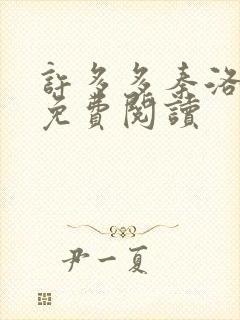 許多多秦洛
免費閱讀
尹一夏